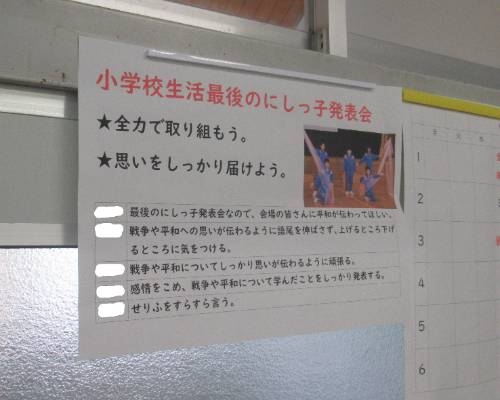 小学校生活最後のにしっ子発表会
★全力で取り組もう。
★思いをしっかり届けよう。
最後のにしっ子発表会なので、会場の皆さんに平和が伝わってほしい。
戦争や平和への思いが伝わるように語尾を伸ばさず、上げるところ下げ
るところに気をつける。
戦争や平和についてしっかり思いが伝わるように頑張る。
感情をこめ、戦争や平和について学んだことをしっかり発表する。
せりふをすらすら言う。
月 火 水
1
2
3
4
5
6